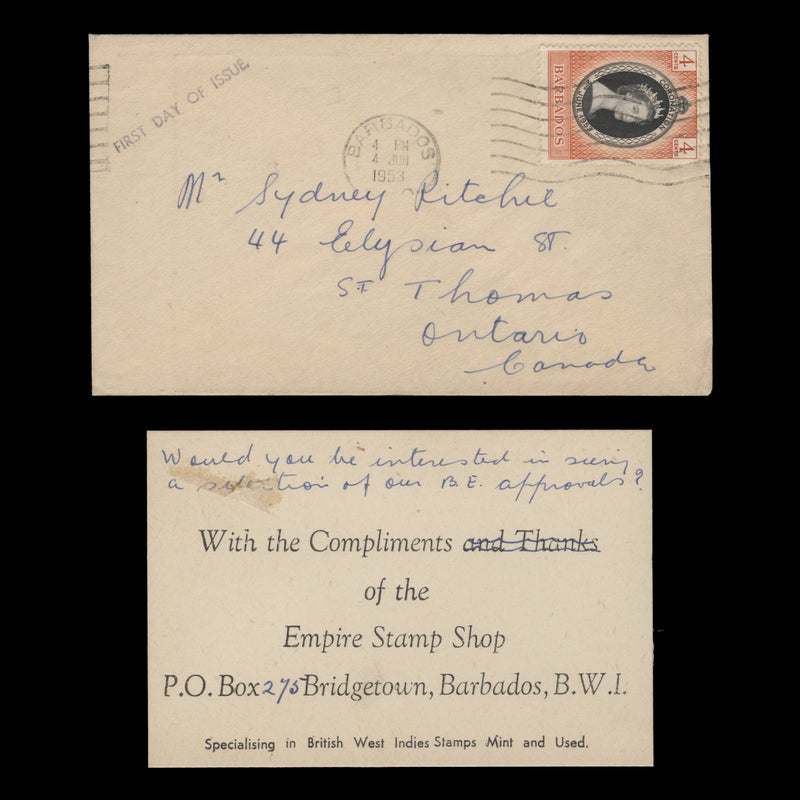 FIRST DAY OF ISSUE.
BARBADOS
4 PM
4 JUN
1953
4
CENTS
BARBADOS
CORONATION
4
CENTS
Mr Sydney Ritchie
44 Elysian ST.
ST Thomas
Ontario
Canada
Would you be interested in seeing
a selection of our B.E. approvals?
With the Compliments and Thanks
of the
Empire Stamp Shop
P.O. Box 275 Bridgetown, Barbados, B.W.I.
Specialising in British West Indies Stamps Mint and Used.